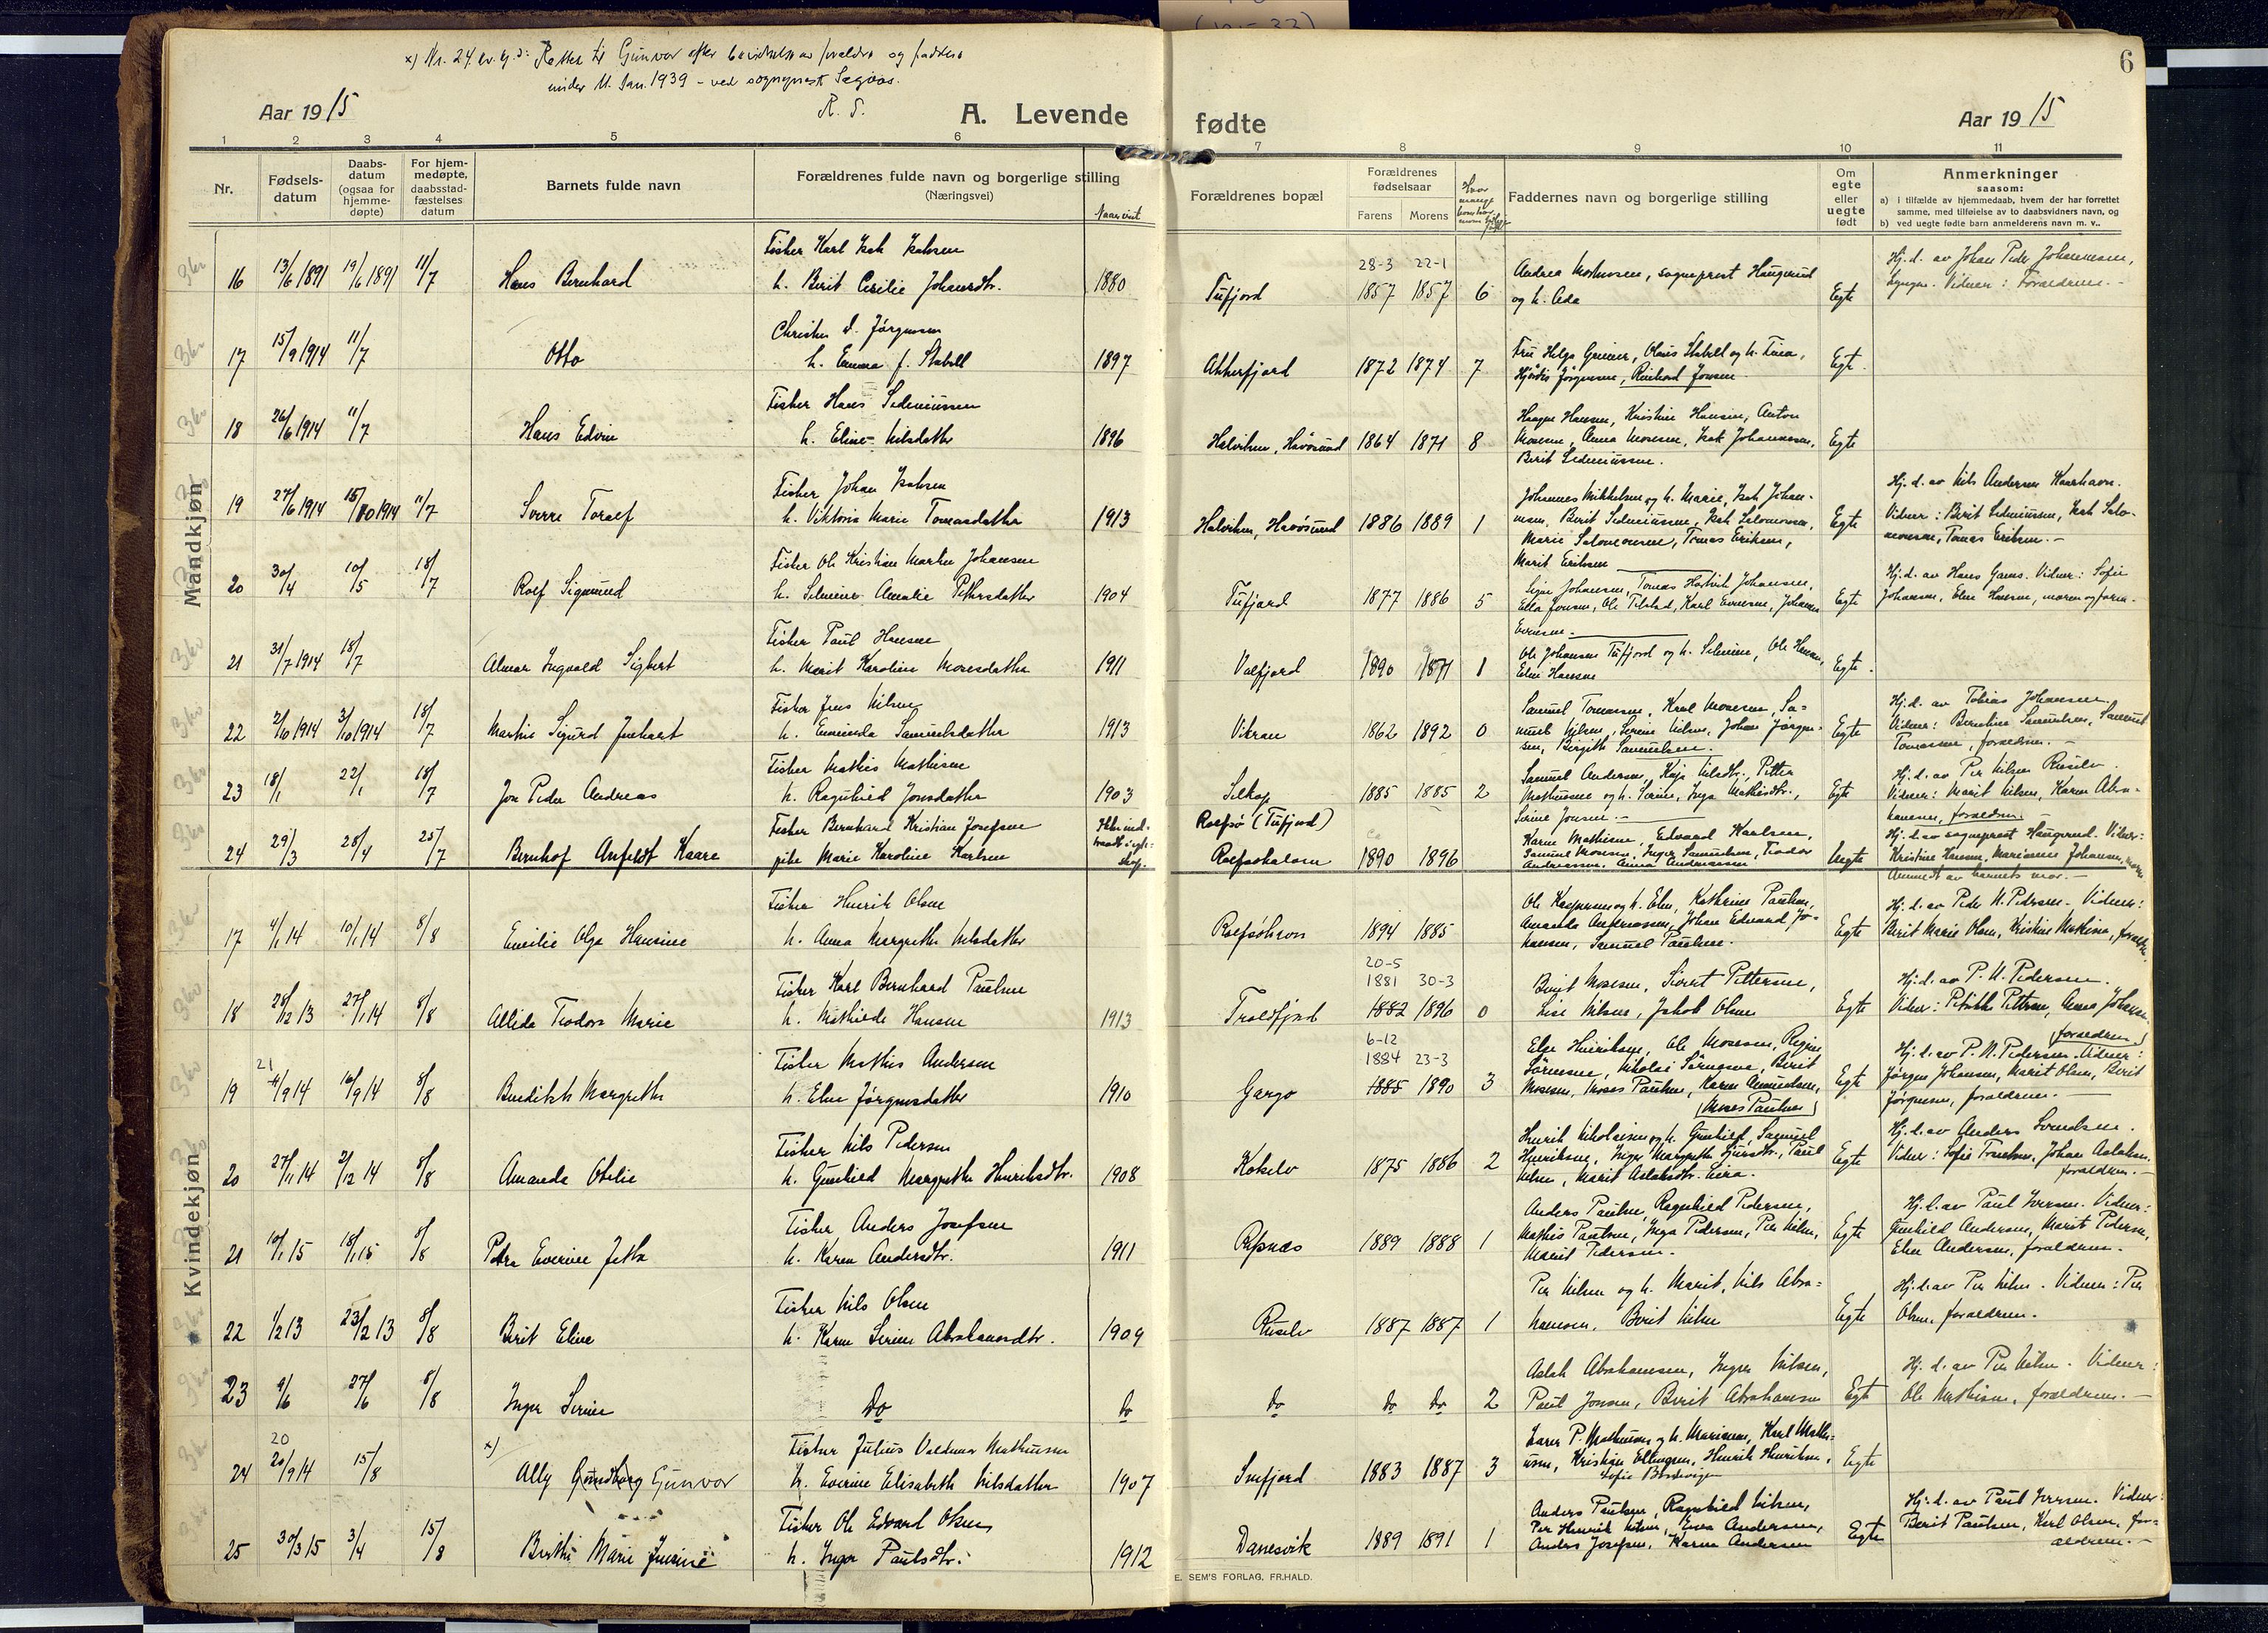 x) Nr. 24 kv. kj. : Rettet til Gunvor efter bevidnelse av forældre og faddere
under 11. Jan. 1939 – ved sogneprest
R. S.
6
Aar 1915
A. Levende
fødte
Aar 1915
1 2 3 4 5 6 7 8 9 10 11
Nr.
Fødsels-
datum
Daabs-
datum
(ogsaa for
hjemme-
døpte)
For hjem-
medøpte,
daabsstad-
fæstelses
datum
Barnets fulde navn
Forældrenes fulde navn og borgerlige stilling
(Næringsvei)
Naar viet
Forældrenes bopæl
Forældrenes
fødselsaar
Farens Morens
Faddernes navn og borgerlige stilling
Om
egte
eller
uegte
født
Anmerkninger
saasom:
a) i tilfælde av hjemmedaab, hvem der har forrettet
samme, med tilføielse av to daabsvidners navn, og
b) ved uegte fødte barn anmelderens navn m. v..
Mandkjøn
Fisker Karl Isak Isaksen
16 13/6 1891 19/6 1891 11/7 Hans Bernhard h. Berit Cecilie Johansdtr. 1880
Tufjord 28-3 1857 22-1 1857 6
Andrea Mortensen, sogneprest Haugerud
og h. Ada
Egte
Hj.d. av Johan Peder Johannesen,
Lyngen. Vidner: Forældrene.
Christen D. Jørgensen
17 15/9 1914 11/7 Otto h. Emma f. Stabell 1897
Akkerfjord 1872 1874 7
Fru Helga Greiner, Olaus Stabell og h. Tina,
Hjørdis Jørgensen, Reinhard Jensen
Egte
Fisker Hans Sedeniussen
18 26/6 1914 11/7 Hans Edvin h. Eline Nilsdatter 1896
Halviken, Havøsund 1864 1871 8
Haagen Hansen, Kristine Hansen, Anton
Mosesen, Anna Mosesen, Isak Johannesen,
Berit Sedeniussen.
Egte
Fisker Johan Isaksen
19 27/6 1914 15/10 1914 11/7 Sverre Toralf h. Viktoria Marie Tomasdatter 1913
Halviken, Havøsund 1886 1889 1
Johannes Mikkelsen og h. Marie, Isak Johan-
nesen, Berit Sedeniussen, Isak Salomonsen,
Marie Salomonsen, Tomas Eriksen,
Marit Eriksen
Egte
Hj.d. av Nils Andersen Kaarhavn.
Vidner: Berit Sedeniussen, Isak Salo-
monsen, Tomas Eriksen.
Fisker Ole Kristian Martin Johansen
20 30/4 10/5 18/7 Rolf Sigmund h. Selmine Amalie Pettersdatter 1904
Tufjord 1877 1886 5
Signe Johansen, Tomas Hartvik Johansen,
Egte
Hj.d. av Hans Gams. Vidner: Sofie
Johansen, Eline Hansen, moren og faren.
Fisker Paul Hansen
21 31/7 1914 18/7 Almar Ingvald Sigbert h. Marit Karoline Mosesdatter 1911
Valfjord 1890 1871 1
Ole Johansen Tufjord og h. Selmine, Ole Hansen,
Eline Hansen
Egte
Fisker Jens Nilsen
22 2/10 1914 3/10 1914 18/7 Martin Sigurd Jenhart h. Eveninda Samuelsdatter 1913
Vikran 1862 1892 0
Samuel Tomassen, Karl Mosesen, Sa-
muel Nilsen, Serine Nilsen, Johan Jørgen-
sen, Birgith Samuelsen.
Egte
Hj.d. av Tobias Johansen
Vidner: Berntine Samuelsen, Samuel
Tomassen, forældrene.
Fisker Mathis Mathisen
23 18/1 22/1 18/7 Jon Peder Andreas h. Ragnhild Jonsdatter 1903
Selkop 1885 1885 2
Samuel Andersen, Kaja Nilsdtr., Petter
Mathisen og h. Serine, Inga Mathisdtr.,
Serine Jonsen.
Egte
Hj.d. av Per Nilsen Ruselv.
Vidner: Marit Nilsen, Karen Abra-
hamsen, forældrene
Fisker Bernhard Kristian Josefsen
24 29/3 28/4 25/7 Bernhof Anfeldt Kaare pike Marie Karoline Karlsen
Rolfsø (Tufjord)
Rolfsøkalven 1890 1896
Karen Mathisen, Edvard Karlsen,
Samuel Mosesen, Inger Samuelsen, Teodor
Andreassen, Anna Andreassen
Uegte
Hj.d. av sogneprest Haugerud. Vidner:
Kristine Hansen, Marianne Johansen, moren
Anmeldt av barnets mor.
Kvindekjøn
Fisker Henrik Olsen
17 4/1 14 10/1 14 8/8 Emilie Olga Hansine h. Anna Margrethe Nilsdatter
Rolfsøhavn 1894 1885
Ole Kaspersen og h. Elen, Kathrine Paulsen,
Amanda Andreassen, Johan Edvard Jo-
hansen, Samuel Paulsen.
Egte
Hj.d. av Peder N. Pedersen. Vidner:
Berit Marie Olsen, Kristine Mathisen, forældre
Fisker Karl Bernhard Paulsen
18 28/12 13 27/1 14 8/8 Allida Teodora Marie h. Mathilde Hansen 1913
Troldfjord 20-5 1881 1882 30-3 1896 0
Berit Mosesen, Sivert Pettersen,
Lise Nilsen, Jakob Olsen
Egte
Hj.d. av P. N. Pedersen.
Vidner: Petrikke Pettersen, Anna Johansen,
forældrene
Fisker Mathis Andersen
19 21 4/9 14 16/9 14 8/8 Bendikte Margrethe h. Elen Jørgensdatter 1910
Gargo 6-12 1884 1885 23-3 1890 3
Elen Henriksen, Ole Mosesen, Regine
Sørensen, Nikolai Sørensen, Berit
Mosesen, Moses Paulsen, Karen Amundsen,
Moses Paulsen
Egte
Hj.d. av P. N. Pedersen. Vidner:
Jørgen Johansen, Marit Olsen, Berit
Jørgensen, forældrene.
Fisker Nils Pedersen
20 27/11 14 2/12 14 8/8 Amanda Otelie h. Gunhild Margrethe Henriksdtr. 1908
Kokelv 1875 1886 2
Henrik Nikolaisen og h. Gunhild, Samuel
Henriksen, Inger Margrethe Sjursdtr., Paul
Nilsen, Marit Aslaksdtr. Sara.
Egte
Hj.d. av Anders Svendsen.
Vidner: Sofie Trondsen, Johan Aslaksen,
forældrene.
Fisker Anders Josefsen
21 10/1 15 18/1 15 8/8 Petra Everine Jetta h. Karen Andersdtr. 1911
Repnæs 1889 1888 1
Anders Paulsen, Ragnhild Pedersen,
Mathis Paulsen, Inga Pedersen, Per Nilsen,
Marit Pedersen.
Egte
Hj.d. av Paul Iversen. Vidner:
Gunhild Andersen, Marit Pedersen,
Elen Andersen, forældrene.
Fisker Nils Olsen
22 1/2 13 23/2 13 8/8 Berit Eline h. Karen Serine Abrahamsdtr. 1909
Ruselv 1887 1887 1
Per Nilsen og h. Marit, Nils Abra-
hamsen, Berit Nilsen
Egte
Hj.d. av Per Nilsen. Vidner: Per
Olsen, forældrene.
23 9/6 27/6 8/8 Inger Serine Do Do
Do Do Do 2
Aslak Abrahamsen, Inger Nilsen,
Paul Jonsen, Berit Abrahamsen
Egte
Hj.d. av Per Nilsen. Vidner:
Ole Mathisen, forældrene.
Fisker Julius Valdemar Mathiesen
24 20 20/9 14 15/8 x) Ally Gundborg Gunvor h. Everine Elisabeth Nilsdatter 1907
Snefjord 1883 1887 3
Lars P. Mathiesen og h. Mariane, Karl Mathi-
esen, Kristian Ellingsen, Henrik Henriksen,
Egte
Fisker Ole Edvard Olsen
25 30/3 15 3/4 15/8 Berthe Marie Jensine h. Inger Paulsdtr. 1912
Danesvik 1889 1891 1
Anders Paulsen, Ragnhild Nilsen,
Per Henrik Nilsen, Ewa Andersen,
Anders Josefsen, Karen Andersen
Egte
Hj.d. av Paul Iversen. Vidner:
Berit Paulsen, Karl Olsen, for-
ældrene.
E. SEM'S FORLAG, FR.HALD.